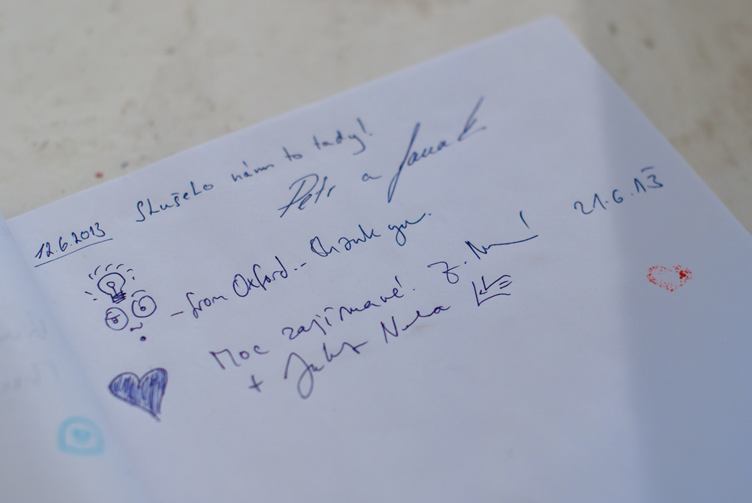 12.6.2013 Slušelo nám to tady!
Petr a Jana K
- from Oxford... Thank you.
21.6.13
Moc zajímavé! Z.
+